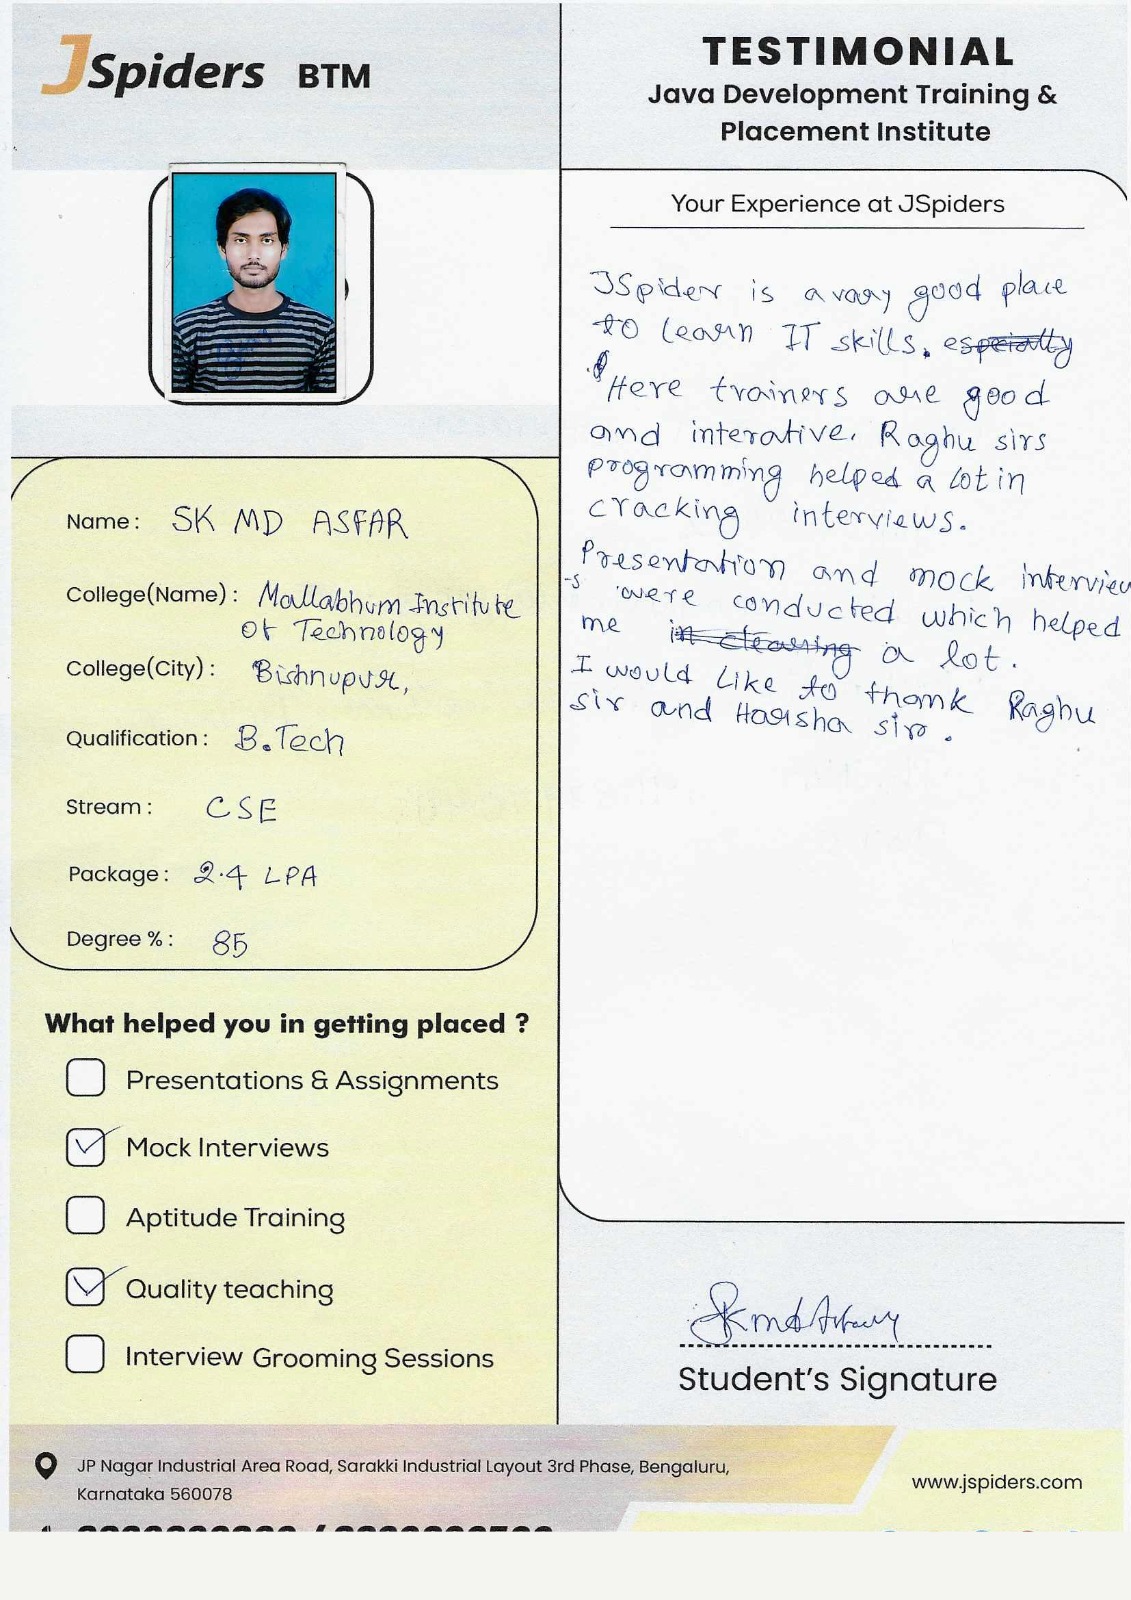 JSpiders BTM
TESTIMONIAL
Java Development Training &
Placement Institute
Your Experience at JSpiders
JSpider is a vary good place
to learn IT skills. especially
Here trainers are good
and interative. Raghu sirs
programming helped a lot in
cracking interviews.
Presentation and mock interview
-s were conducted which helped
me in clearing a lot.
I would like to thank Raghu
sir and Harsha sir.
Name : SK MD ASFAR
College(Name) : Mallabhum Institute
Of Technology
College(City) : Bishnupur,
Qualification : B.Tech
Stream : CSE
Package : 2.4 LPA
Degree % : 85
What helped you in getting placed ?
Presentations & Assignments
Mock Interviews
Aptitude Training
Quality teaching
Interview Grooming Sessions
SK md Asfar
Student's Signature
JP Nagar Industrial Area Road, Sarakki Industrial Layout 3rd Phase, Bengaluru,
Karnataka 560078
www.jspiders.com